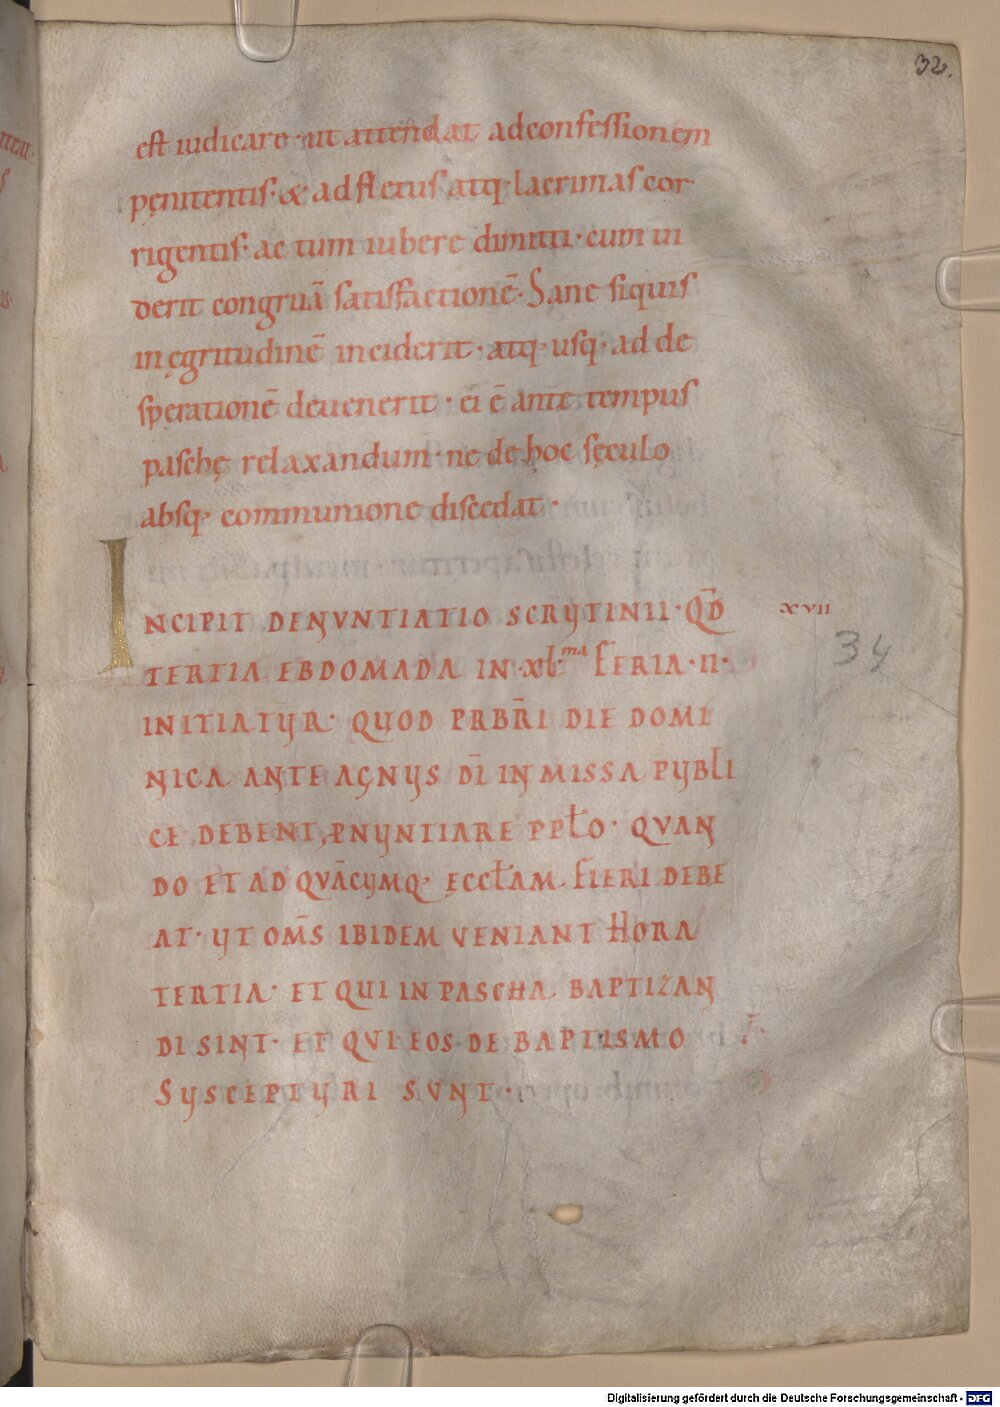 32.
est iudicare · ut attendat ad confessionem
pęnitentis · & ad fletus atq; lacrimas cor-
rigentis · ac tum iubere dimitti · cum ui
derit congruā satisfactionē · Sane siquis
in ęgritudinē inciderit · atq; usq; ad de
sperationē deuenerit · ei ē ante tempus
paschę relaxandum · ne de hoc sęculo
absq; communione discedat ·
INCIPIT DENVNTIATIO SCRVTINII · QD̄ xvii
TERTIA EBDOMADA IN · XL · ma FERIA · II · 34
INITIATVR · QUOD PRBR̄I DIE DOMI
NICA ANTE AGNVS DĪ IN MISSA PVBLI
CE DEBENT PNVNTIARE PPŁO · QVAN
DO ET AD QVĀCVMQ; ĘCCŁAM FIERI DEBE
AT · VT OM̄S IBIDEM VENIANT HORA
TERTIA · ET QUI IN PASCHA BAPTIZAN
DI SINT · ET QVI EOS DE BAPTISMO
SVSCEPTVRI SVNT ·
Digitalisierung gefördert durch die Deutsche Forschungsgemeinschaft - DFG